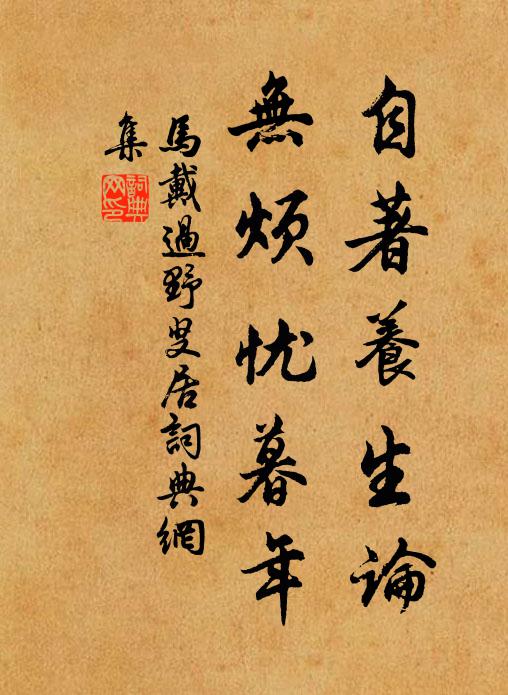 自著養生論
無煩忧暮年
馬戴過野叟居詞典網
集
詞典
网印